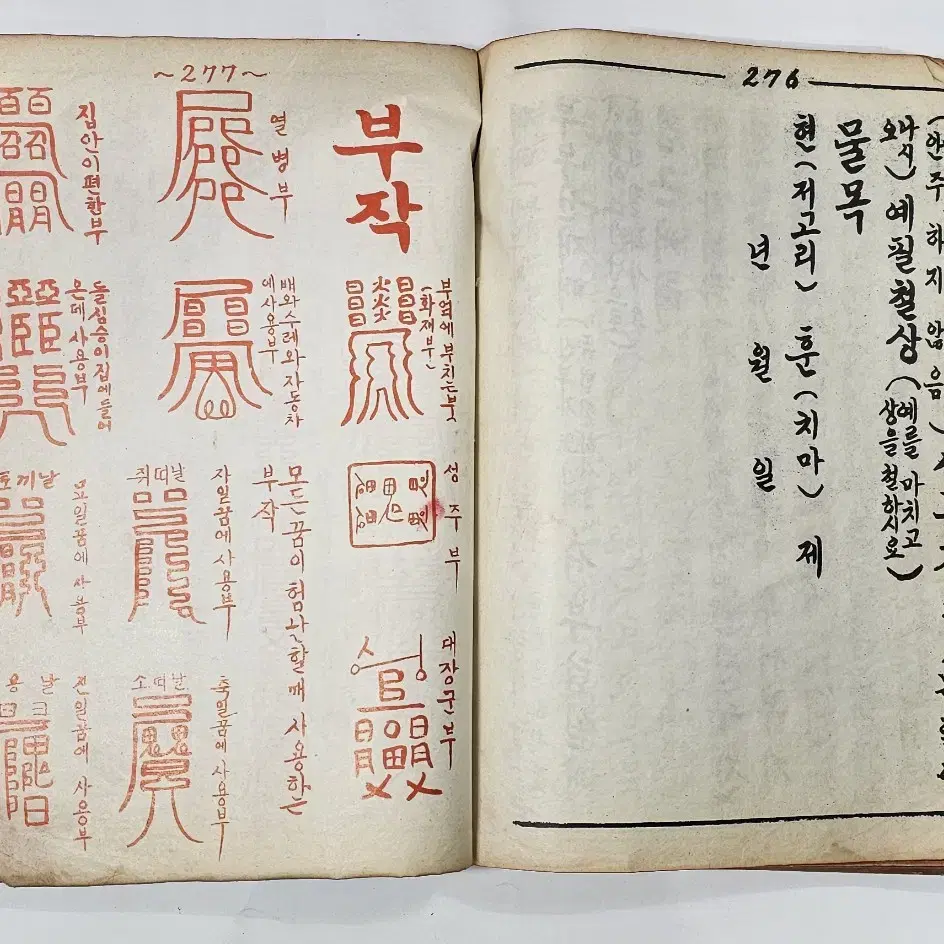 276
(안주 하지 않음)
예필철상 (예를 마치고
상을 철하시요)
물목
현(저고리) 훈(치마) 제
년 월 일
~277~
부작
부엌에 부치는 부
(화재부)
성주부
대장군부
열병부
배와 수레와 자동차
에 사용부
모든 꿈이 험난할 때 사용하는
부작
자일꿈에 사용부
쥐띠날
축일꿈에 사용부
소띠날
집안이 편한부
들짐승이 집에 들어
온데 사용부
묘일꿈에 사용부
토끼날
진일꿈에 사용부
용날